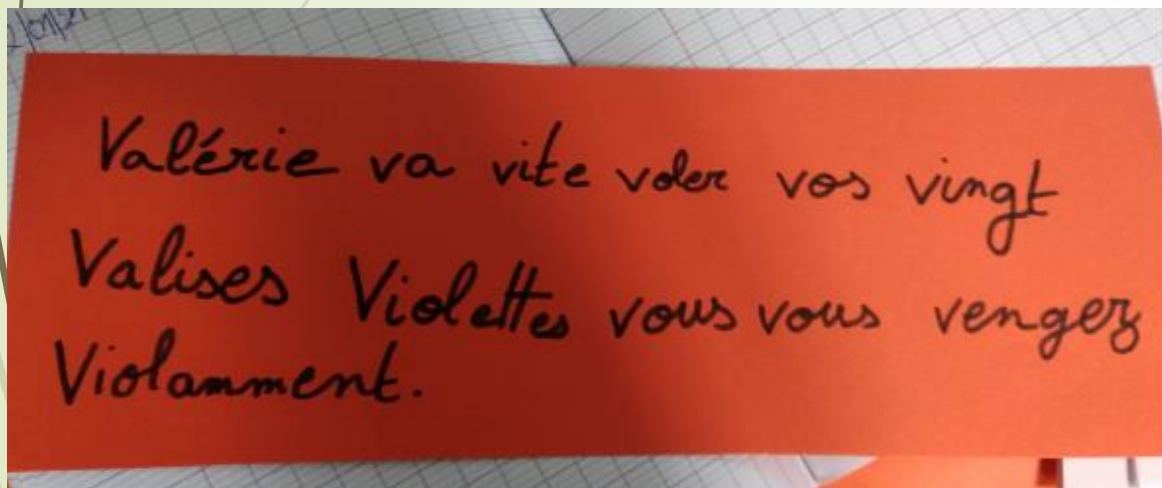 Valérie va vite voler vos vingt
Valises Violettes vous vous vengez
Violamment.